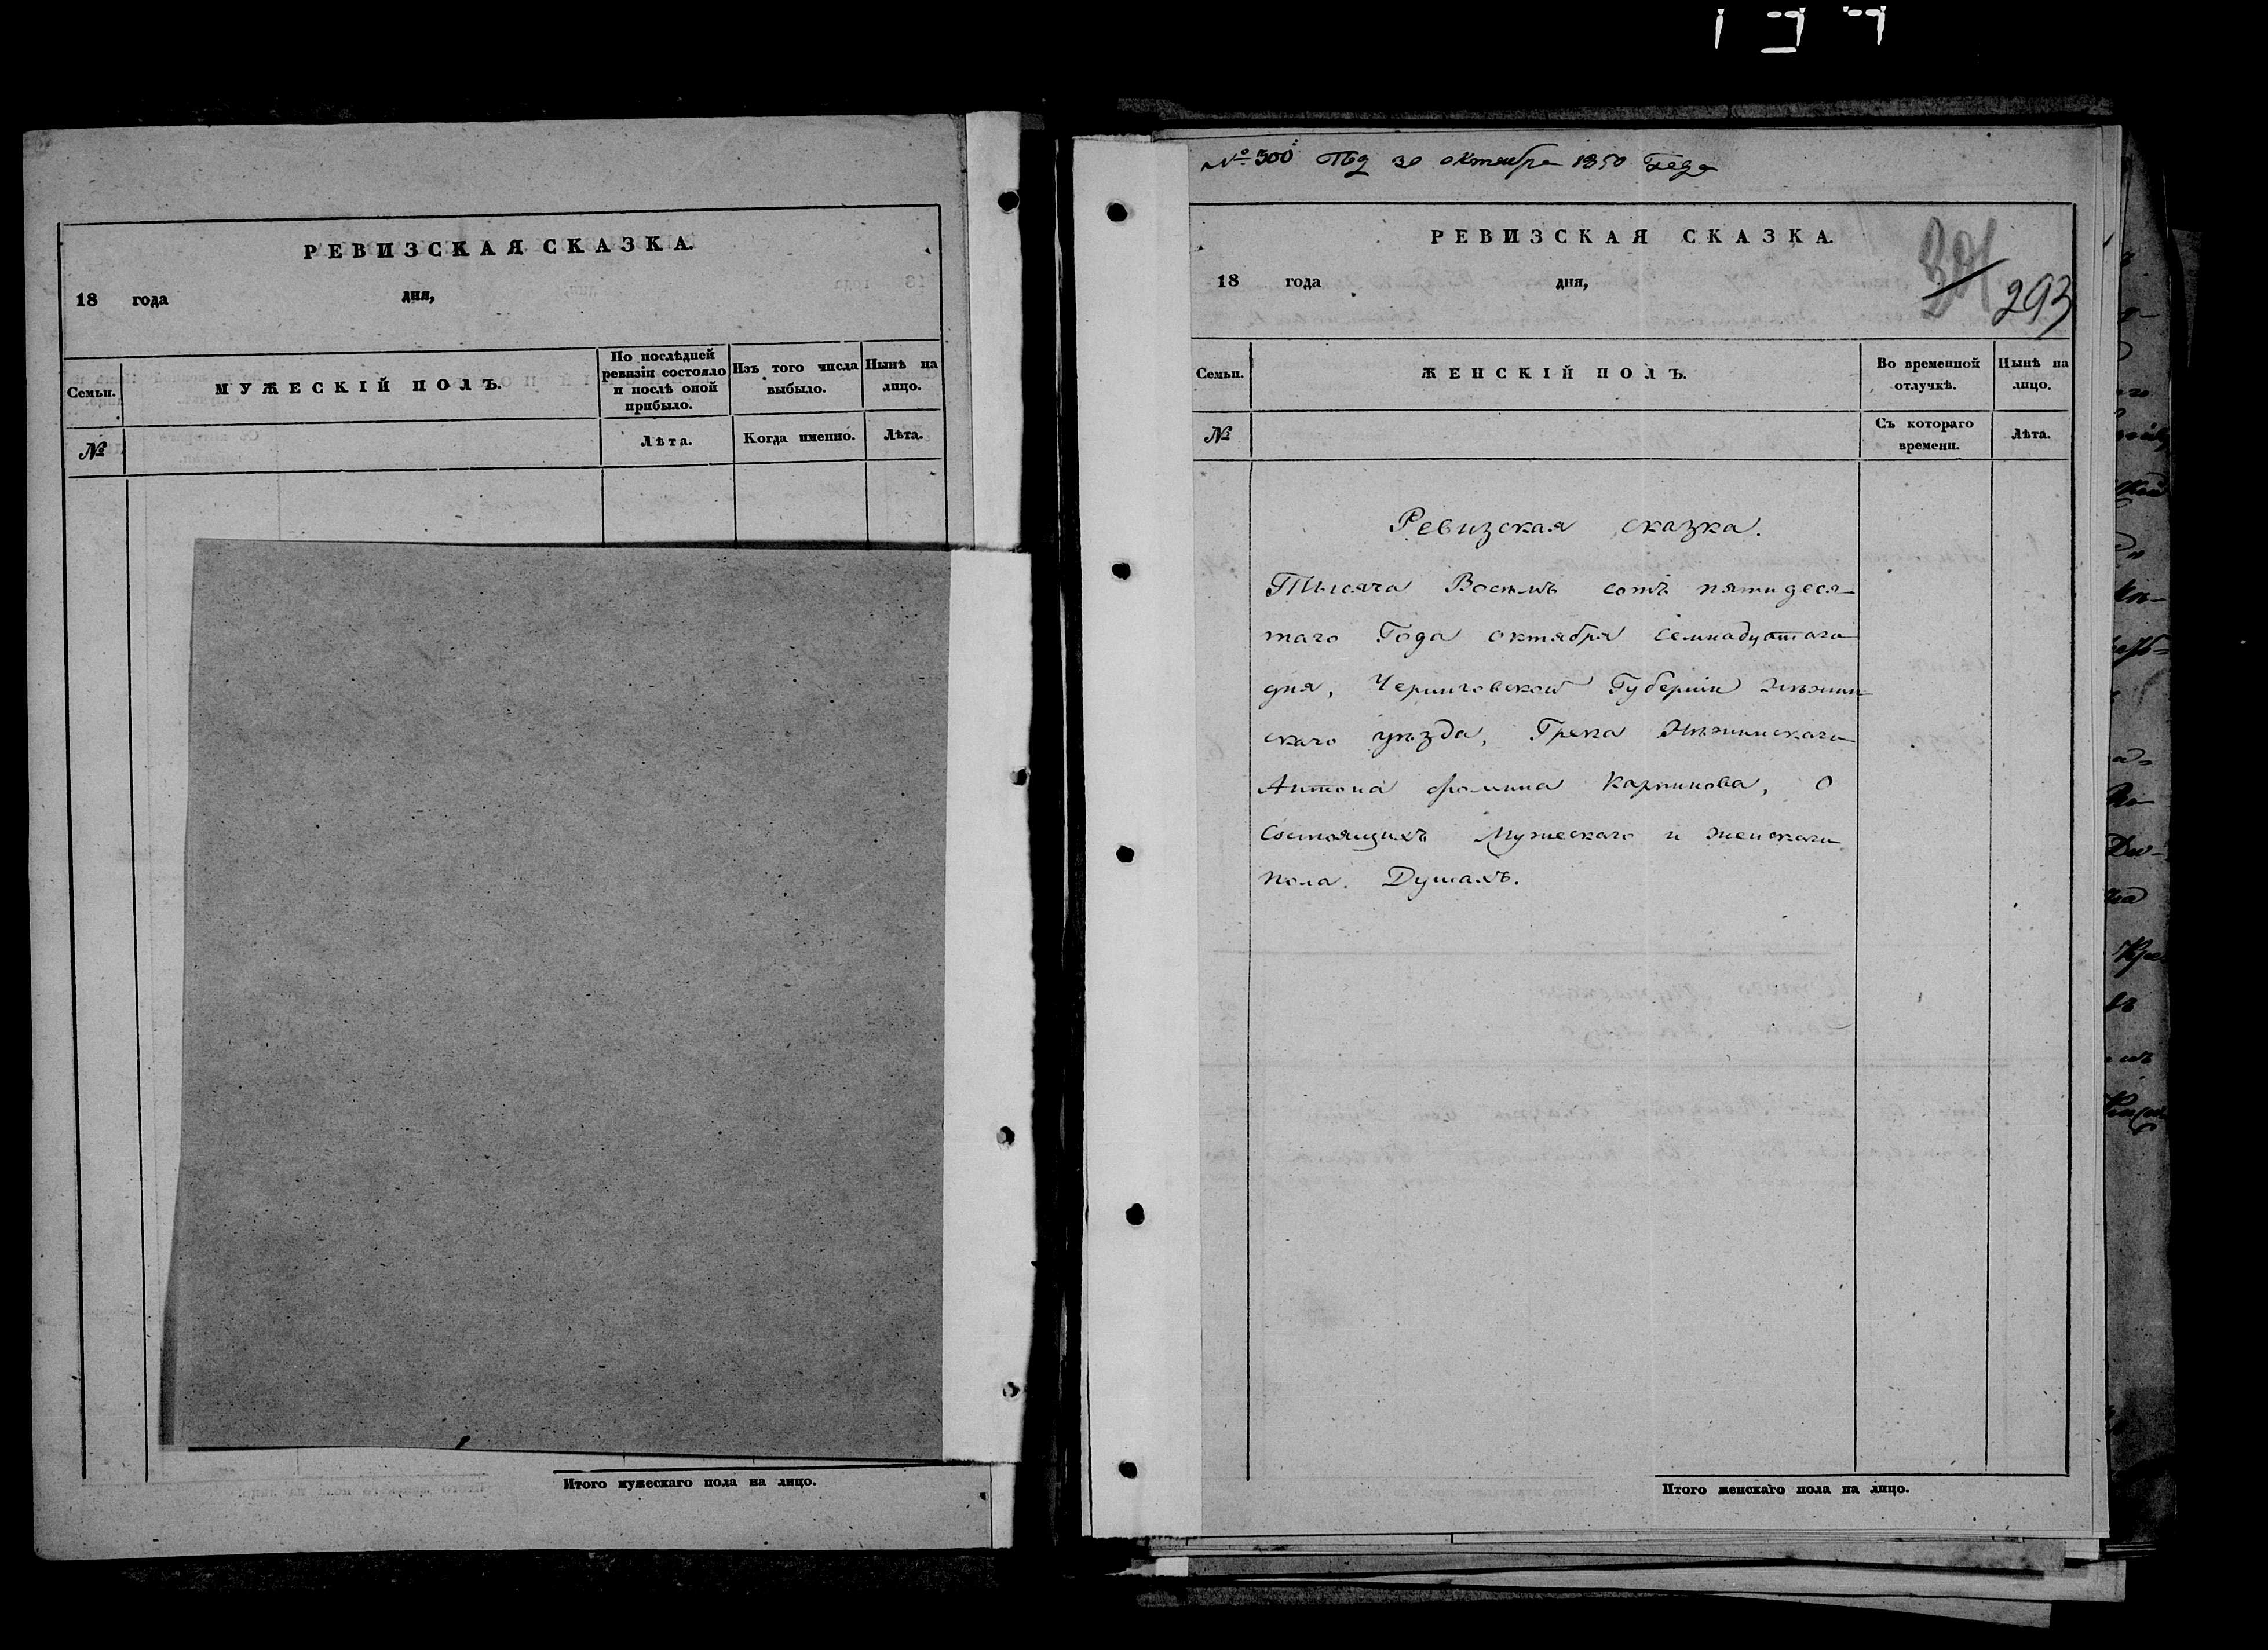 РЕВИЗСКАЯ СКАЗКА.
18 года дня,
Семьи.
МУЖЕСКІЙ ПОЛЪ.
По послѣдней ревизіи состояло и послѣ оной прибыло.
Изъ того числа выбыло.
Нынѣ на лицо.
№
Лѣта.
Когда именно.
Лѣта.
Итого мужескаго пола на лицо.
№ 300 30 октября 1850 Года
РЕВИЗСКАЯ СКАЗКА.
18 года дня,
293
Семьи.
ЖЕНСКІЙ ПОЛЪ.
Во временной отлучкѣ.
Нынѣ на лицо.
№
Съ котораго времени.
Лѣта.
Ревизская сказка.
Тысяча Восемь сотъ пятидеся-
таго Года октября семнадцатаго
дня, Черниговской Губерніи Нѣжин-
скаго уѣзда, Грека Нѣжинскаго
Антона Фомина Карпинова, О
Состоящихъ Мужескаго и женскаго
пола. Душахъ.
Итого женскаго пола на лицо.